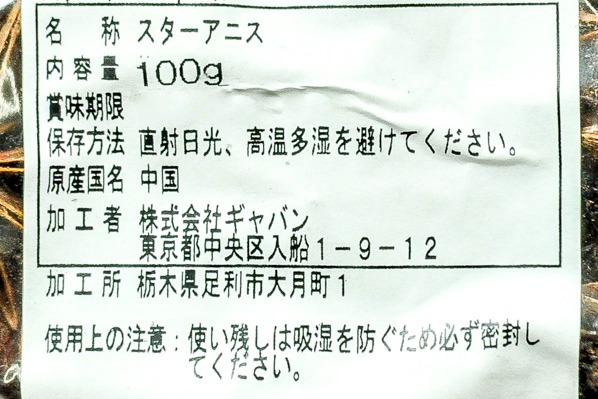 名 称 スターアニス
内容量 100g
賞味期限
保存方法 直射日光、高温多湿を避けてください。
原産国名 中国
加工者 株式会社ギャバン
東京都中央区入船1-9-12
加工所 栃木県足利市大月町1
使用上の注意：使い残しは吸湿を防ぐため必ず密封し
てください。